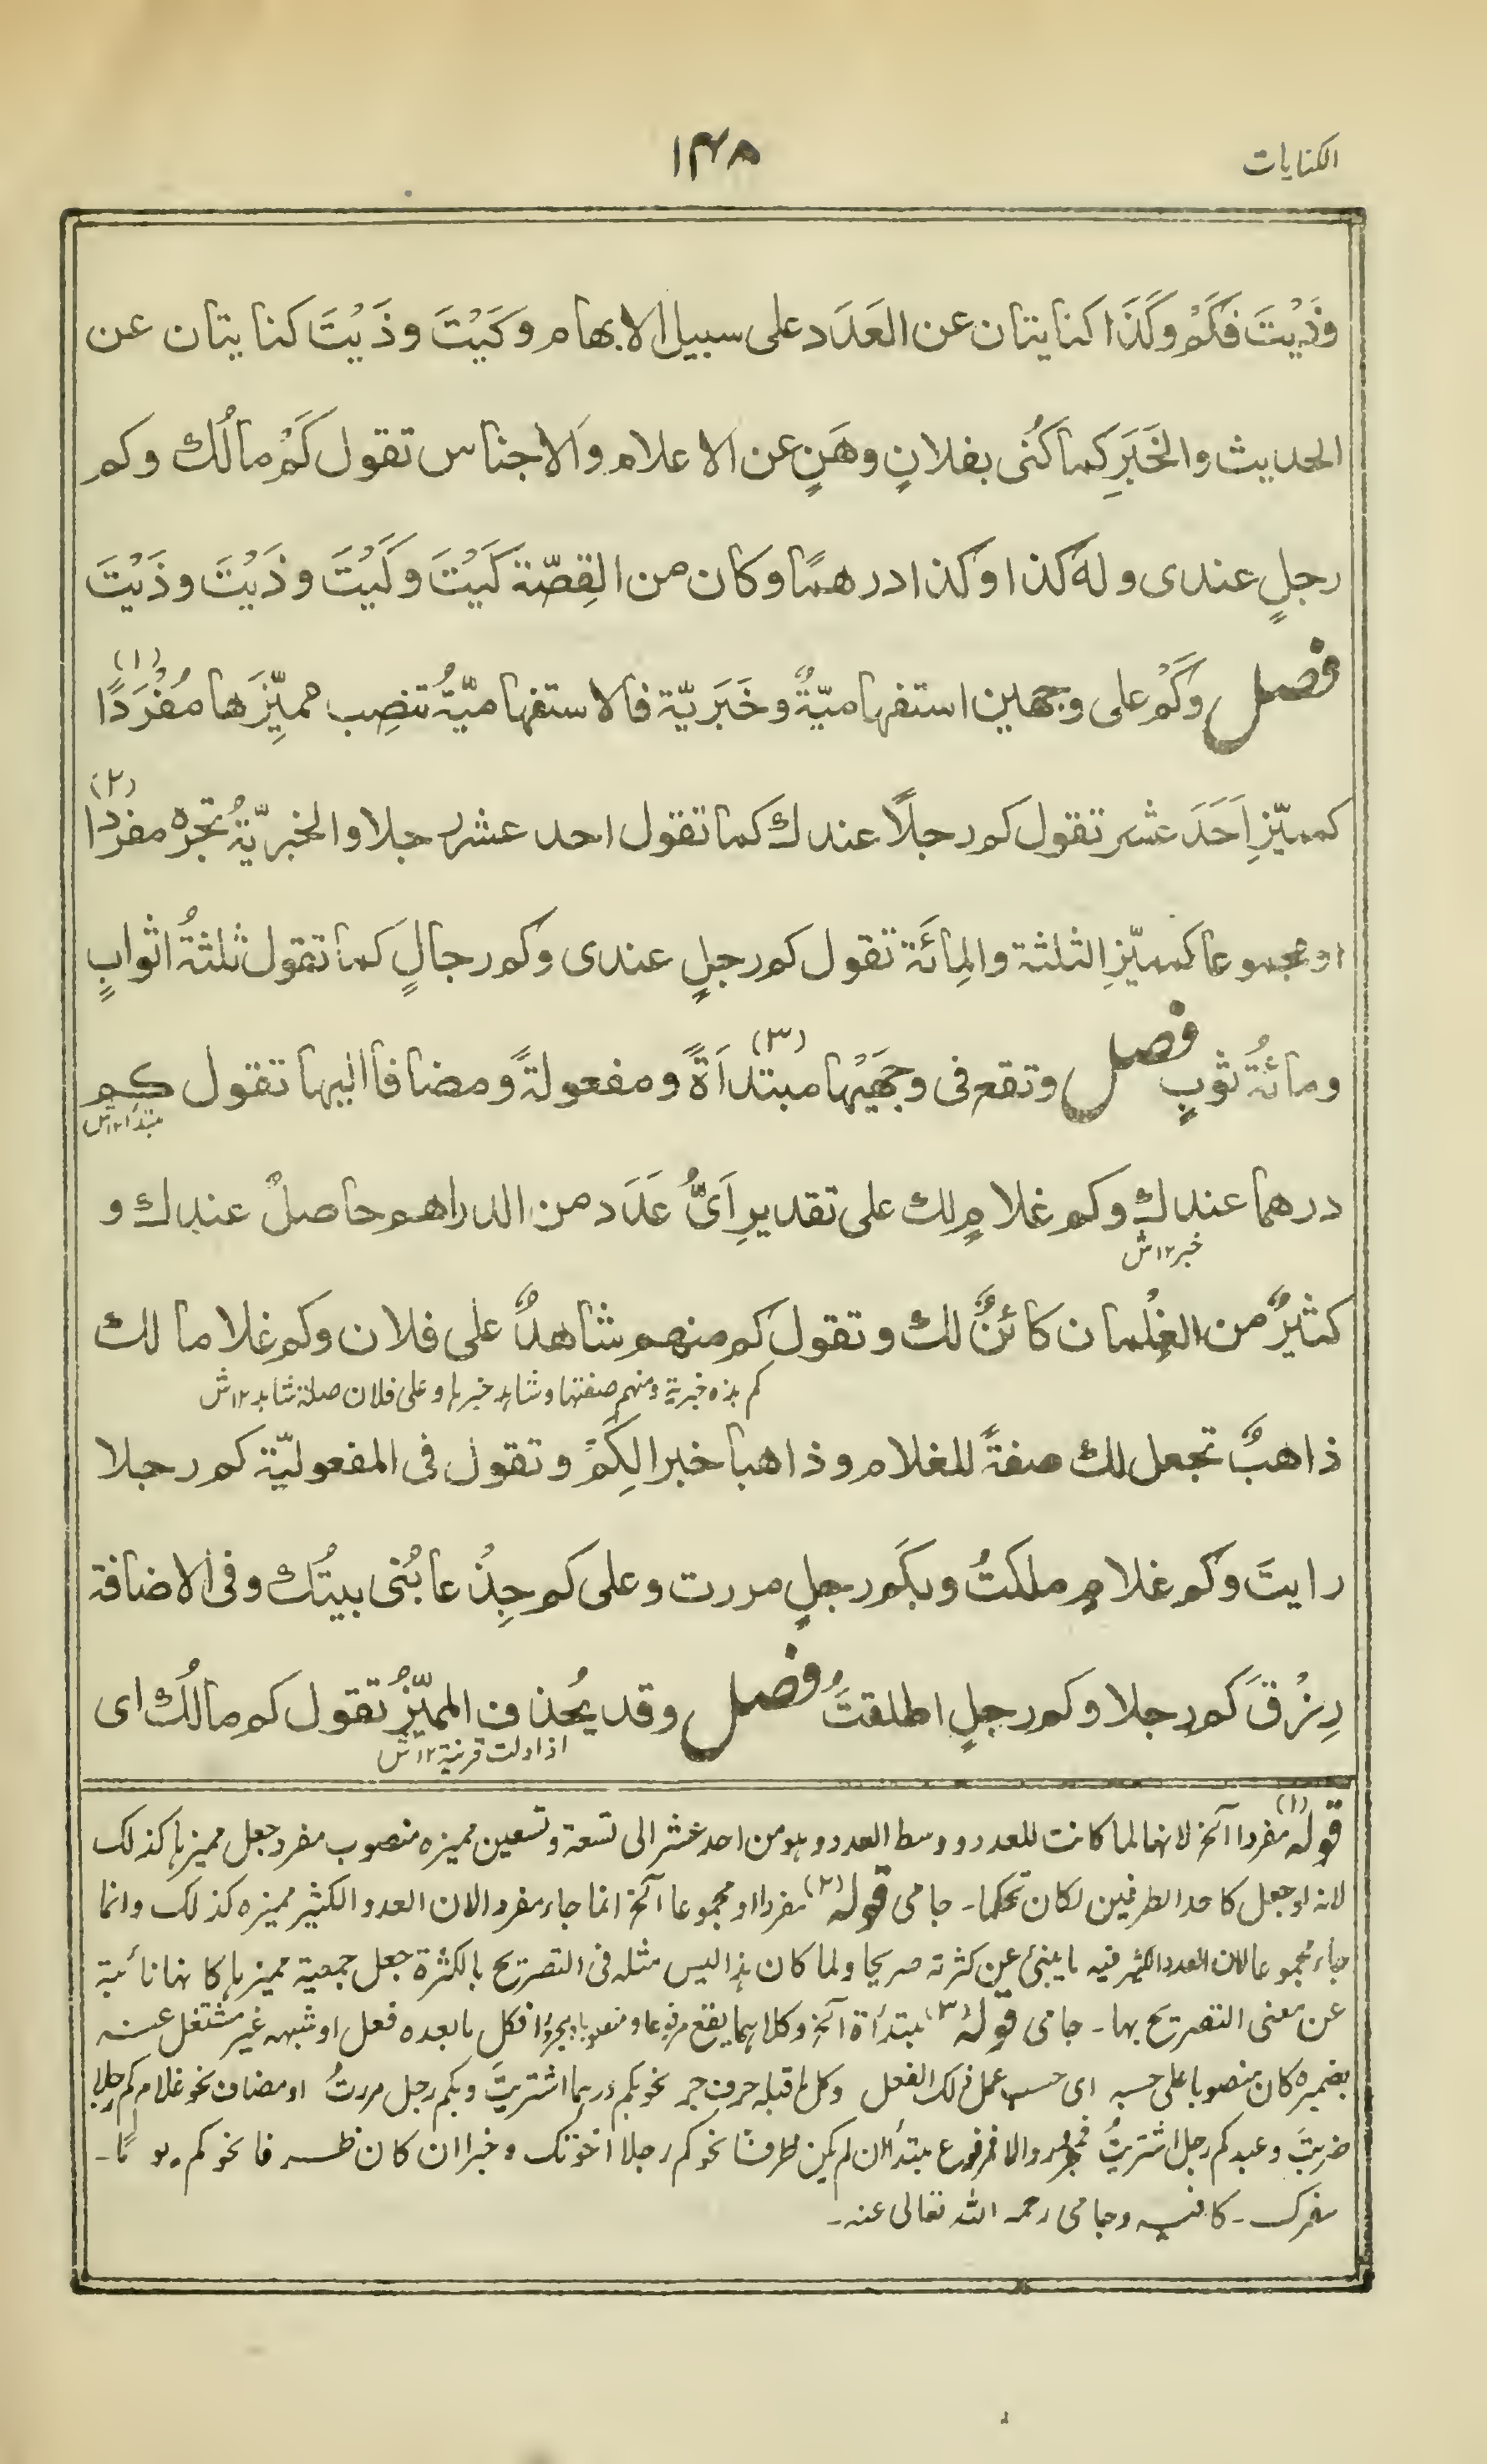 الكنايات
١٤٨
وذَيْتَ فكَمْ وكَذَا كنايتان عن العَدَد على سبيل الابهام وكَيْتَ وذَيْتَ كنايتان عن
الحديث والخَبَرِ كما كُنى بفلانٍ وهَنٍ عن الاعلام والاجناس تقول كَمْ مالُك وكم
رجلٍ عندى وله كذا وكذا درهمًا وكان من القِصّة كَيْتَ وكَيْتَ وذَيْتَ وذَيْتَ
فصل وكَمْ على وجهين استفهاميّةٌ وخَبَريّة فالاستفهاميّةُ تنصِب مميِّزَها مُفْرَدًا (١)
كمميّزِ اَحَدَ عشر تقول كم رجلًا عندك كما تقول احد عشر رجلا والخبريّةُ تجره مفردا (٢)
او مجموعا كمميّزِ الثلثة والمِائَة تقول كم رجلٍ عندى وكم رجالٍ كما تقول ثلثةُ اثوابٍ
ومائةُ ثوبٍ فصل وتقع فى وجهَيْها مبتدأةً (٣) ومفعولةً ومضافا اليها تقول كم
مبتدأ ١٢ ش
درهما عندك وكم غلامٍ لك على تقديرِ اَىُّ عَدَد من الدراهم حاصلٌ عندك و
خبر ١٢ ش
كثيرٌ من الغِلْمان كائنٌ لك وتقول كم منهم شاهدٌ على فلان وكم غلاما لك
كم هذه خبرية ومنهم صفتها وشاهد خبرها وعلى فلان صلة شاهد ١٢ ش
ذاهبٌ تجعل لك صفةً للغلام وذاهبا خبرا لِكَمْ وتقول فى المفعوليّة كم رجلا
رايتَ وكم غلامٍ ملكتُ وبكَم رجلٍ مررت وعلى كم جِذْعا بُنى بيتُك وفى الاضافة
رِزْقَ كم رجلا وكم رجلٍ اطلقتَُ فصل وقد يُحذف المميّزُ تقول كم مالُك اى
اذا دلت قرينة ١٢ ش
قوله (١) مفردا آلخ لانها لما كانت للعدد ووسط العدد وهو من احد عشر الى تسعة وتسعين مميزه منصوب مفرد جعل مميزها كذلك
لانه لو جعل كاحد الطرفين لكان تحكما۔ جامى قوله (٢) مفردا او مجموعا آلخ انما جاء مفردا لان العدد الكثير مميزه كذلك وانما
جاء مجموعا لان العدد الكثير فيه ما ينبئ عن كثرته صريحا ولما كان هذا ليس مثله فى التصريح بالكثرة جعل جمعية مميزها كانها نائبة
عن معنى التصريح بها۔ جامى قوله (٣) مبتدأة آلخ وكلاهما يقع مرفوعا ومنصوبا ومجرورا فكل ما بعده فعل او شبهه غير مشتغل عنه
بضميره كان منصوبا على حسبه اى حسب عمل ذلك الفعل وكل ما قبله حرف جر نحو بكم درهما اشتريتَ وبكم رجل مررتُ او مضاف نحو غلام كم رجلا
ضربتَ وعبد كم رجل اشتريتُ فمجرور والا فمرفوع مبتدأ ان لم يكن ظرفا نحو كم رجلا اخوتك وخبر ان كان ظرفا نحو كم يوما۔
سفرك۔ كافيه وجامى رحمه الله تعالى عنه۔